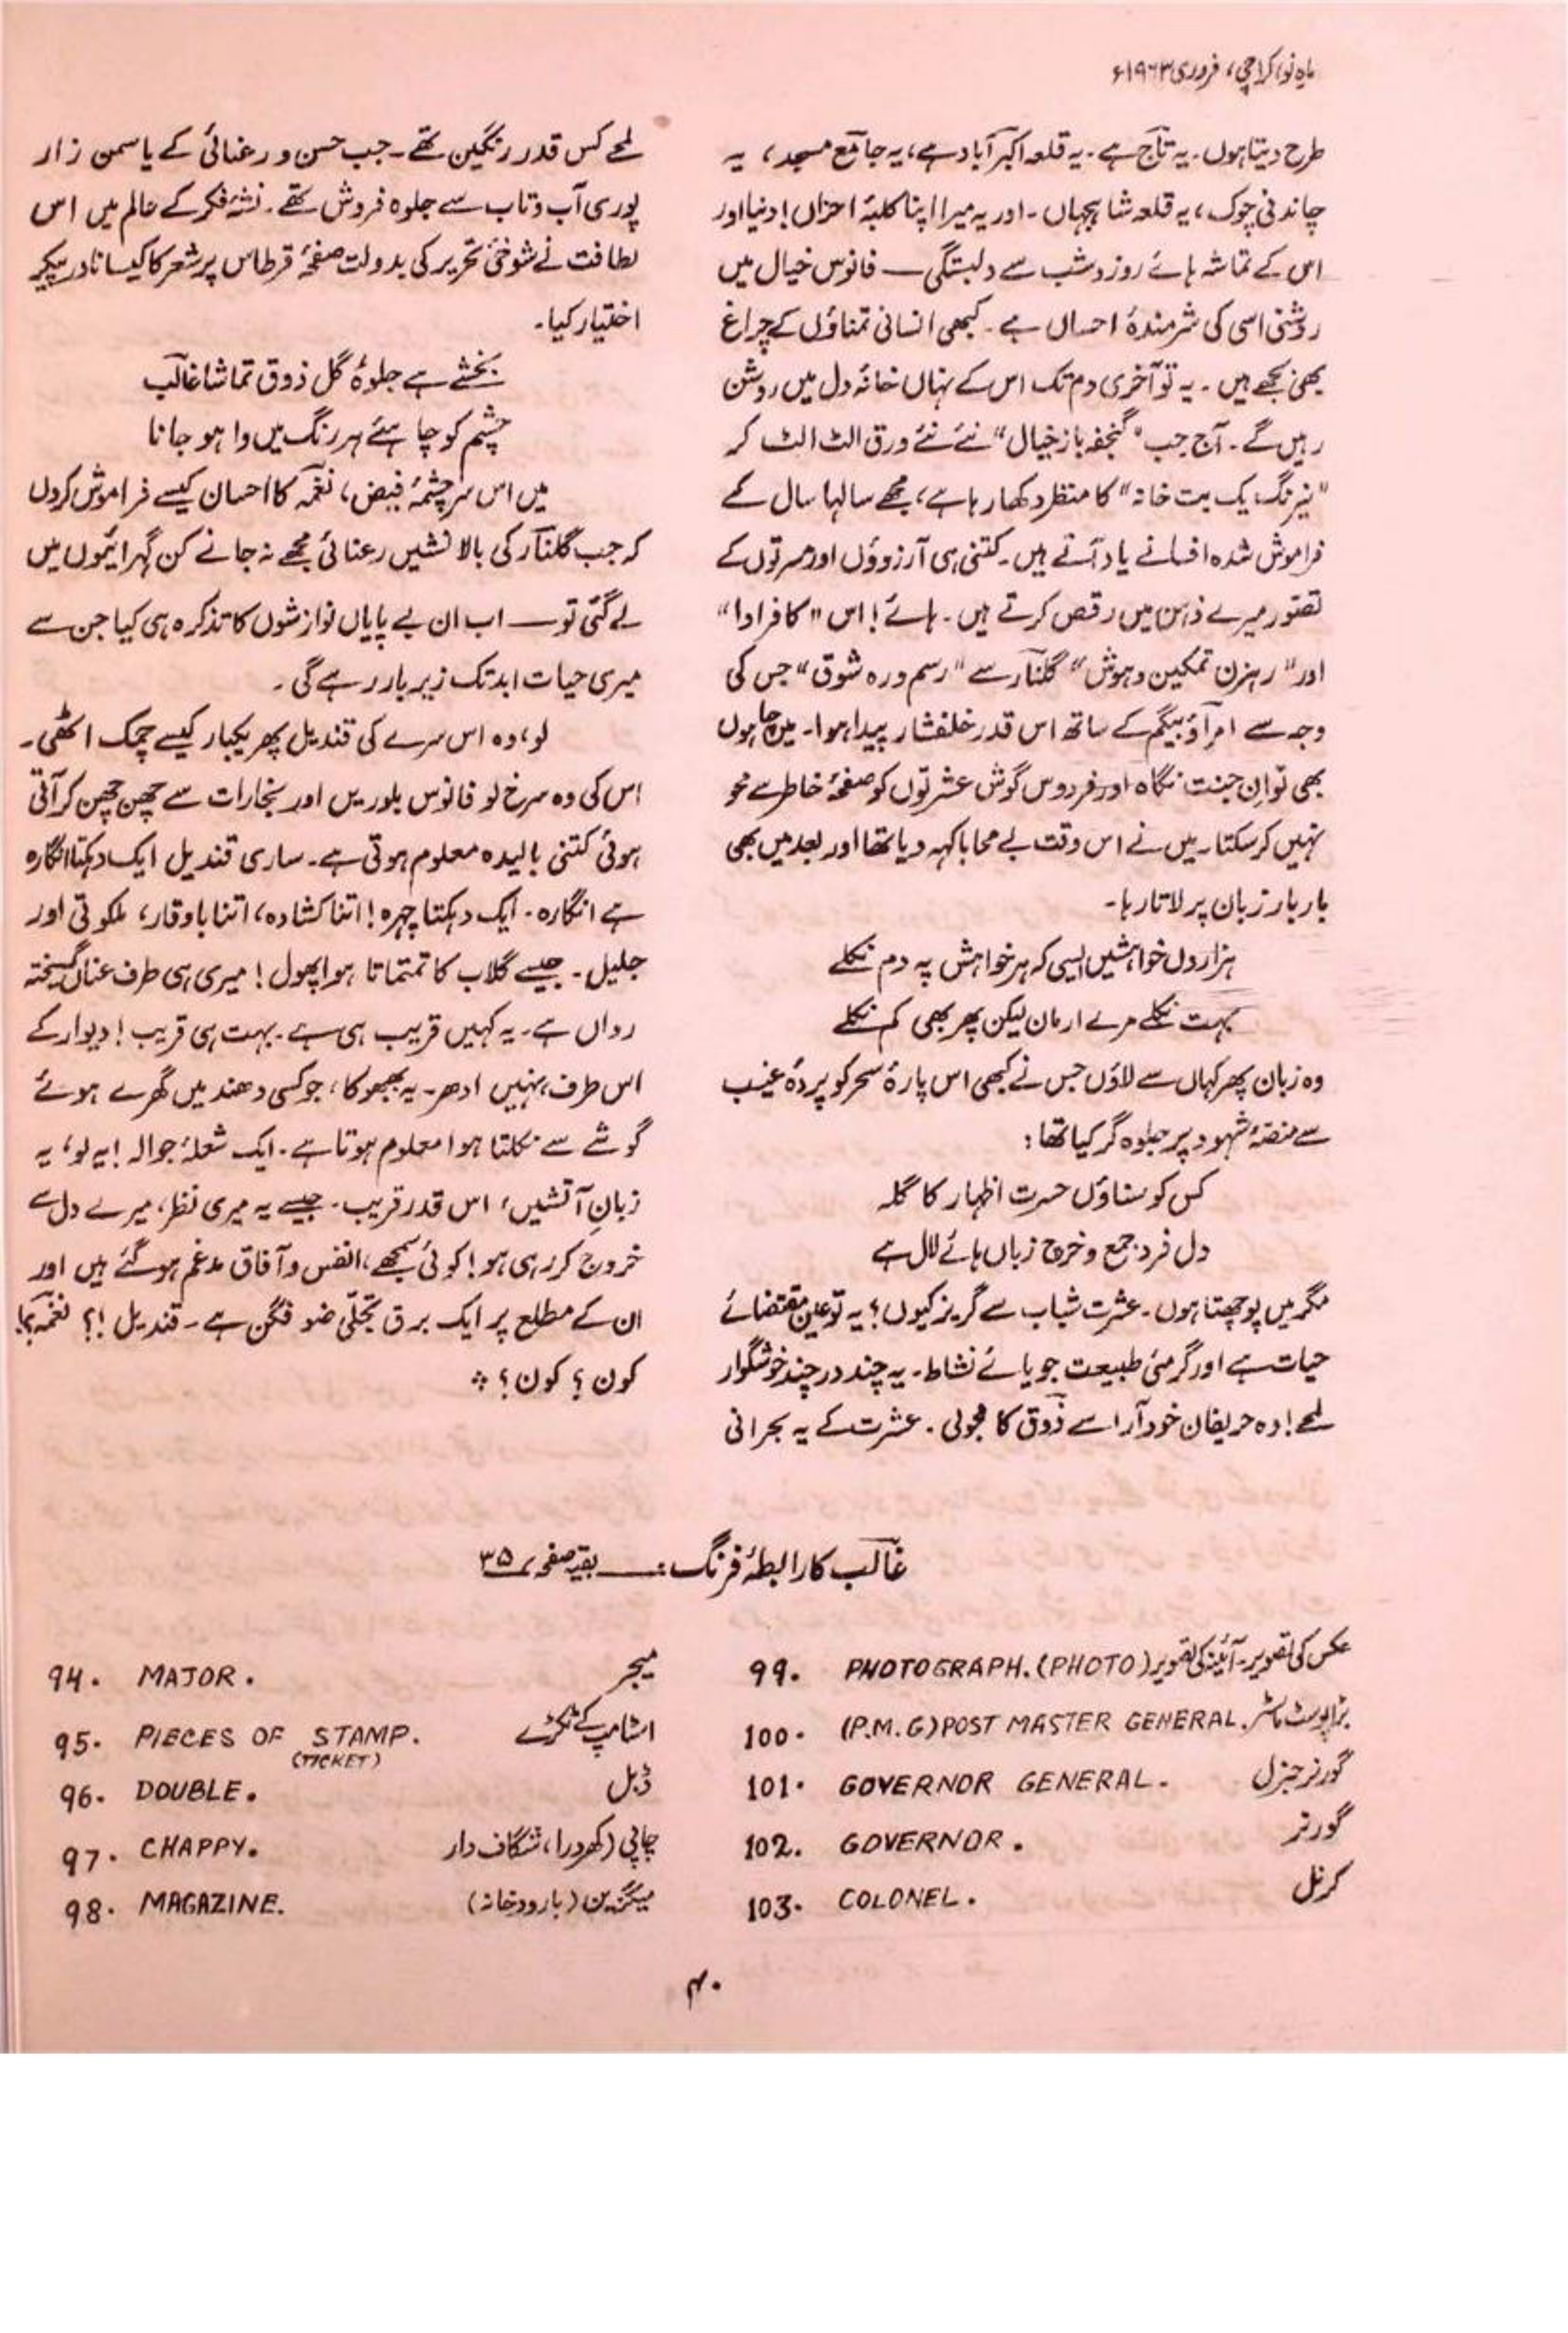 ماہِ نو، کراچی، فروری ۱۹۶۳ء
طرح دیتا ہوں۔ یہ تاج ہے۔ یہ قلعہ اکبر آباد ہے، یہ جامع مسجد، یہ
چاندنی چوک، یہ قلعہ شاہجہاں۔ اور یہ میرا اپنا کلبۂ احزاں! دنیا اور
اس کے تماشہ ہائے روز و شب سے دلبستگی — فانوس خیال میں
روشنی اسی کی شرمندۂ احساں ہے۔ کبھی انسانی تمناؤں کے چراغ
بھی بجھے ہیں۔ یہ تو آخری دم تک اس کے نہاں خانۂ دل میں روشن
رہیں گے۔ آج جب "گنجفہ باز خیال" نئے نئے ورق الٹ الٹ کر
"نیرنگ یک بت خانہ" کا منظر دکھا رہا ہے، مجھے سالہا سال کے
فراموش شدہ افسانے یاد آتے ہیں۔ کتنی ہی آرزوؤں اور مسرتوں کے
تصور میرے ذہن میں رقص کرتے ہیں۔ ہائے! اس "کافر ادا"
اور "رہزن تمکین و ہوش" گلنار سے "رسم و رہ شوق" جس کی
وجہ سے امراؤ بیگم کے ساتھ اس قدر خلفشار پیدا ہوا۔ میں چاہوں
بھی تو ان جنت نگاہ اور فردوس گوش عشرتوں کو صفحۂ خاطر سے محو
نہیں کر سکتا۔ میں نے اس وقت بے محابا کہہ دیا تھا اور بعد میں بھی
بار بار زبان پر لاتا رہا۔
ہزاروں خواہشیں ایسی کہ ہر خواہش پہ دم نکلے
بہت نکلے مرے ارمان لیکن پھر بھی کم نکلے
وہ زبان پھر کہاں سے لاؤں جس نے کبھی اس پارۂ سحر کو پردۂ غیب
سے منصۂ شہود پر جلوہ گر کیا تھا:
کس کو سناؤں حسرت اظہار کا گلہ
دل فرد جمع و خرچ زباں ہائے لال ہے
مگر میں پوچھتا ہوں۔ عشرت شباب سے گریز کیوں؟ یہ تو عین مقتضائے
حیات ہے اور گرمئی طبیعت جویائے نشاط۔ یہ چند در چند خوشگوار
لمحے! وہ حریفان خود آرا سے ذوق کا . عشرت کے یہ بحرانی
لمحے کس قدر رنگین تھے۔ جب حسن و رعنائی کے یاسمن زار
پوری آب و تاب سے جلوہ فروش تھے۔ نشۂ فکر کے عالم میں اس
لطافت نے شوخئ تحریر کی بدولت صفحۂ قرطاس پر شعر کا کیسا نادر پیکر
اختیار کیا۔
بخشے ہے جلوۂ گل ذوق تماشا غالب
چشم کو چاہئے ہر رنگ میں وا ہو جانا
میں اس سرچشمۂ فیض، نغمہ کا احسان کیسے فراموش کردوں
کہ جب گلنار کی بالا نشیں رعنائی مجھے نہ جانے کن گہرائیوں میں
لے گئی تو — اب ان بے پایاں نوازشوں کا تذکرہ ہی کیا جن سے
میری حیات ابد تک زیر بار رہے گی۔
لو، وہ اس سرے کی قندیل پھر یکبار کیسے چمک اٹھی۔
اس کی وہ سرخ لو فانوس بلوریں اور بخارات سے چھن چھن کر آتی
ہوئی کتنی بالیدہ معلوم ہوتی ہے۔ ساری قندیل ایک دہکتا انگارہ
ہے انگارہ۔ ایک دہکتا چہرہ! اتنا کشادہ، اتنا باوقار، ملکوتی اور
جلیل۔ جیسے گلاب کا تمتماتا ہوا پھول! میری ہی طرف عناں گسیختہ
رواں ہے۔ یہ کہیں قریب ہی ہے۔ بہت ہی قریب! دیوار کے
اس طرف، نہیں ادھر۔ یہ بھبھوکا، جو کسی دھند میں گھرے ہوئے
گوشے سے نکلتا ہوا معلوم ہوتا ہے۔ ایک شعلۂ جوالہ! یہ لو، یہ
زبانِ آتشیں، اس قدر قریب۔ جیسے یہ میری نظر، میرے دل سے
خروج کر رہی ہو! کوئی سمجھے، انفس و آفاق مدغم ہو گئے ہیں اور
ان کے مطلع پر ایک برق تجلّی ضو فگن ہے۔ قندیل!؟ نغمہ؟!
کون؟ کون؟
غالب کا رابطۂ فرنگ: — بقیہ صفحہ ۳۵
94. MAJOR. میجر
95. PIECES OF STAMP. اسٹامپ کے ٹکڑے
(TICKET)
96. DOUBLE. ڈبل
97. CHAPPY. چاپی (کھردرا، شگاف دار
98. MAGAZINE. میگزین (بارود خانہ)
99. PHOTOGRAPH. (PHOTO) عکس کی تصویر۔ آئینہ کی تصویر
100. (P.M.G) POST MASTER GENERAL. بڑا پوسٹ ماسٹر
101. GOVERNOR GENERAL. گورنر جنرل
102. GOVERNOR. گورنر
103. COLONEL. کرنل
۴۰